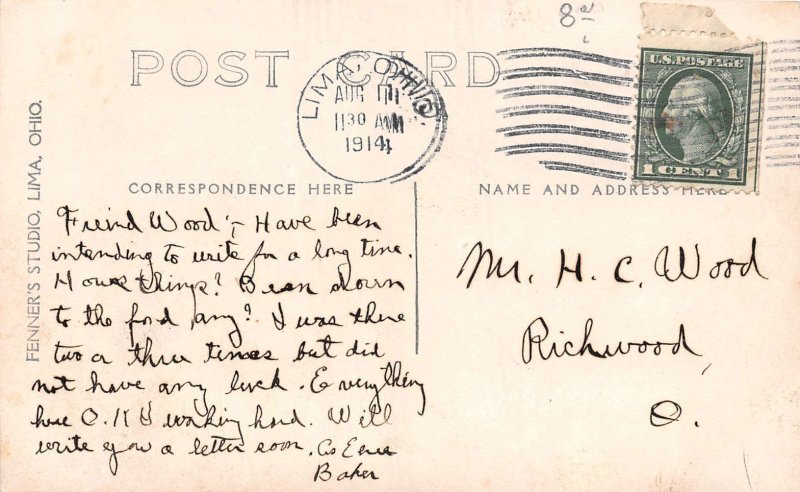 8
POST CARD
LIMA, OHIO.
AUG
11 30 AM
1914
U.S. POSTAGE
1 CENT 1
CORRESPONDENCE HERE
NAME AND ADDRESS HERE
FENNER'S STUDIO, LIMA, OHIO.
Freind Wood;- Have been
intending to write for a long time.
Hows things? Been down
to the ford any? I was there
two or three times but did
not have any luck. Everything
here O.K. working hard. Will
write you a letter soon. As Ever
Baker
Mr. H. C. Wood
Richwood,
O.